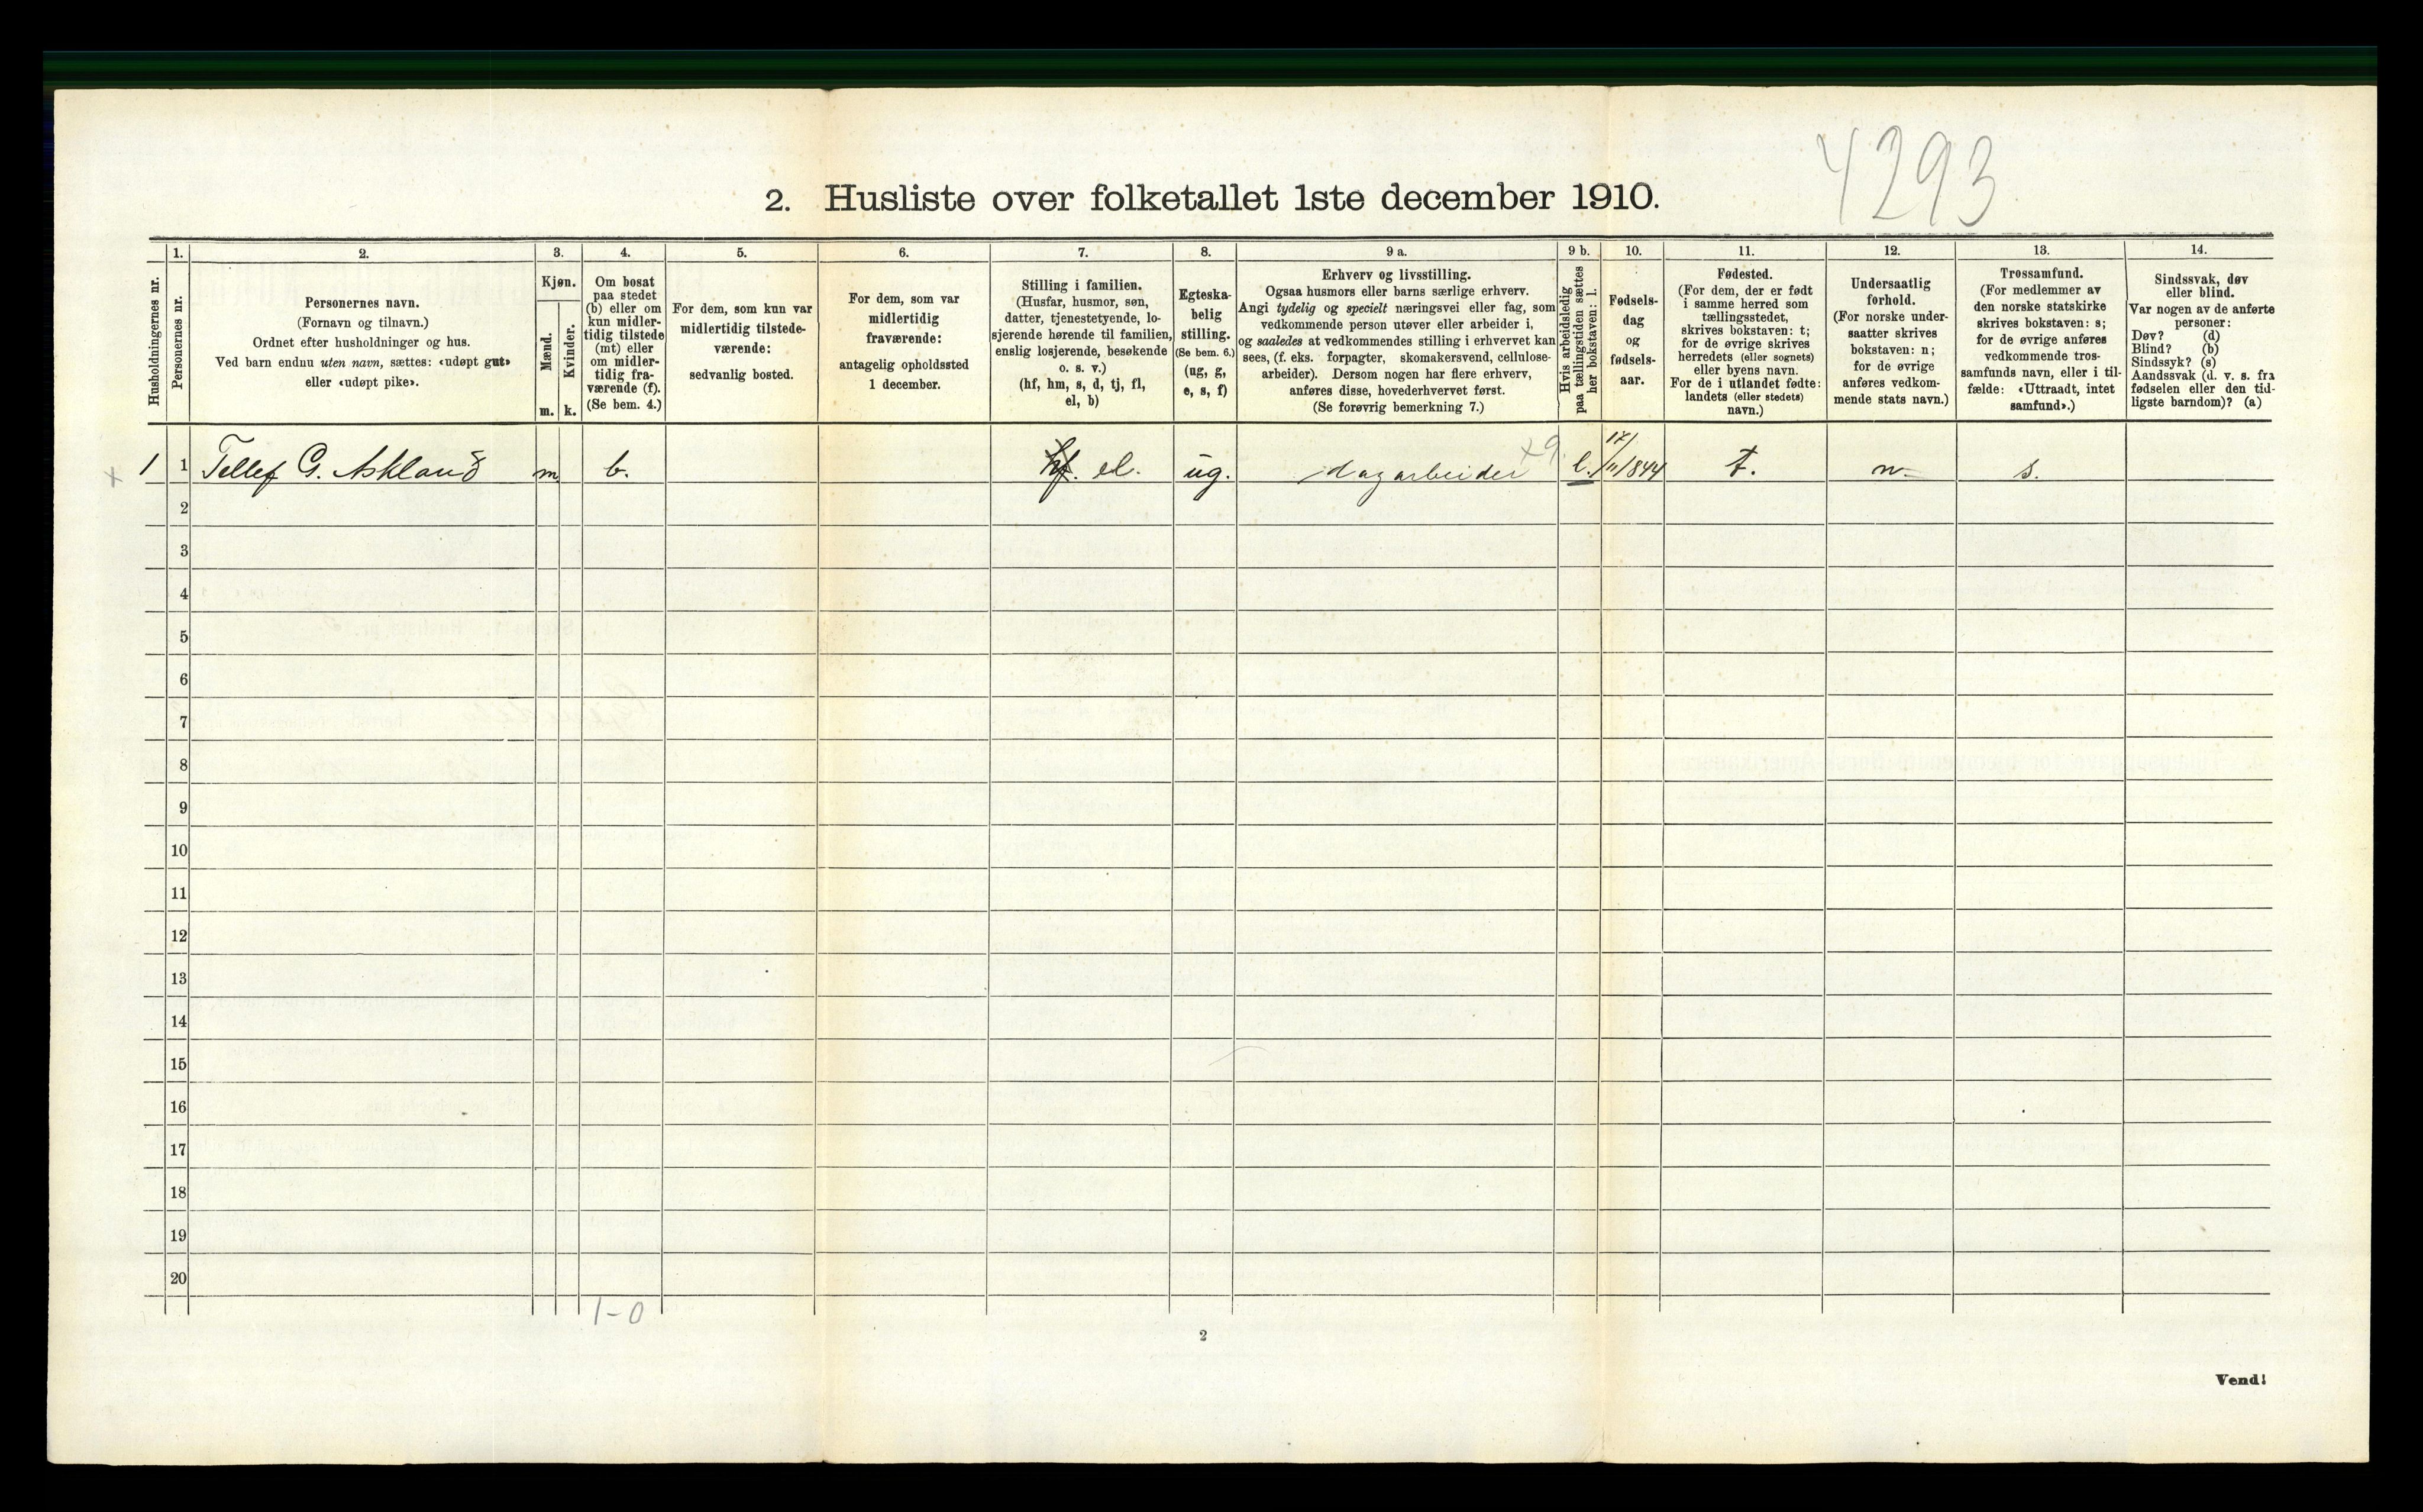 4293
2. Husliste over folketallet 1ste december 1910.
Husholdningernes nr.
1.
Personernes nr.
2.
Personernes navn.
(Fornavn og tilnavn.)
Ordnet efter husholdninger og hus.
Ved barn endnu uten navn, sættes: «udøpt gut»
eller «udøpt pike».
3.
Kjøn.
Mænd.
m.
Kvinder.
k.
4.
Om bosat
paa stedet
(b) eller om
kun midler-
tidig tilstede
(mt) eller
om midler-
tidig fra-
værende (f).
(Se bem. 4.)
5.
For dem, som kun var
midlertidig tilstede-
værende:
sedvanlig bosted.
6.
For dem, som var
midlertidig
fraværende:
antagelig opholdssted
1 december.
7.
Stilling i familien.
(Husfar, husmor, søn,
datter, tjenestetyende, lo-
sjerende hørende til familien,
enslig losjerende, besøkende
o. s. v.)
(hf, hm, s, d, tj, fl,
el, b)
8.
Egteska-
belig
stilling.
(Se bem. 6.)
(ug, g,
e, s, f)
9 a.
Erhverv og livsstilling.
Ogsaa husmors eller barns særlige erhverv.
Angi tydelig og specielt næringsvei eller fag, som
vedkommende person utøver eller arbeider i,
og saaledes at vedkommendes stilling i erhvervet kan
sees, (f. eks. forpagter, skomakersvend, cellulose-
arbeider). Dersom nogen har flere erhverv,
anføres disse, hovederhvervet først.
(Se forøvrig bemerkning 7.)
9 b.
Hvis arbeidsledig
paa tællingstiden sættes
her bokstaven: l.
10.
Fødsels-
dag
og
fødsels-
aar.
11.
Fødested.
(For dem, der er født
i samme herred som
tællingsstedet,
skrives bokstaven: t;
for de øvrige skrives
herredets (eller sognets)
eller byens navn.
For de i utlandet fødte:
landets (eller stedets)
navn.)
12.
Undersaatlig
forhold.
(For norske under-
saatter skrives
bokstaven: n;
for de øvrige
anføres vedkom-
mende stats navn.)
13.
Trossamfund.
(For medlemmer av
den norske statskirke
skrives bokstaven: s;
for de øvrige anføres
vedkommende tros-
samfunds navn, eller i til-
fælde: «Uttraadt, intet
samfund».)
14.
Sindssvak, døv
eller blind.
Var nogen av de anførte
personer:
Døv? (d)
Blind? (b)
Sindssyk? (s)
Aandssvak (d. v. s. fra
fødselen eller den tid-
ligste barndom)? (a)
x 1 1 Tellef G. Askland m b. hf. el. ug. dagarbeider x9. l. 17/11/844 t. n. s.
2
3
4
5
6
7
8
9
10
11
12
13
14
15
16
17
18
19
20
1-0
2
Vend!